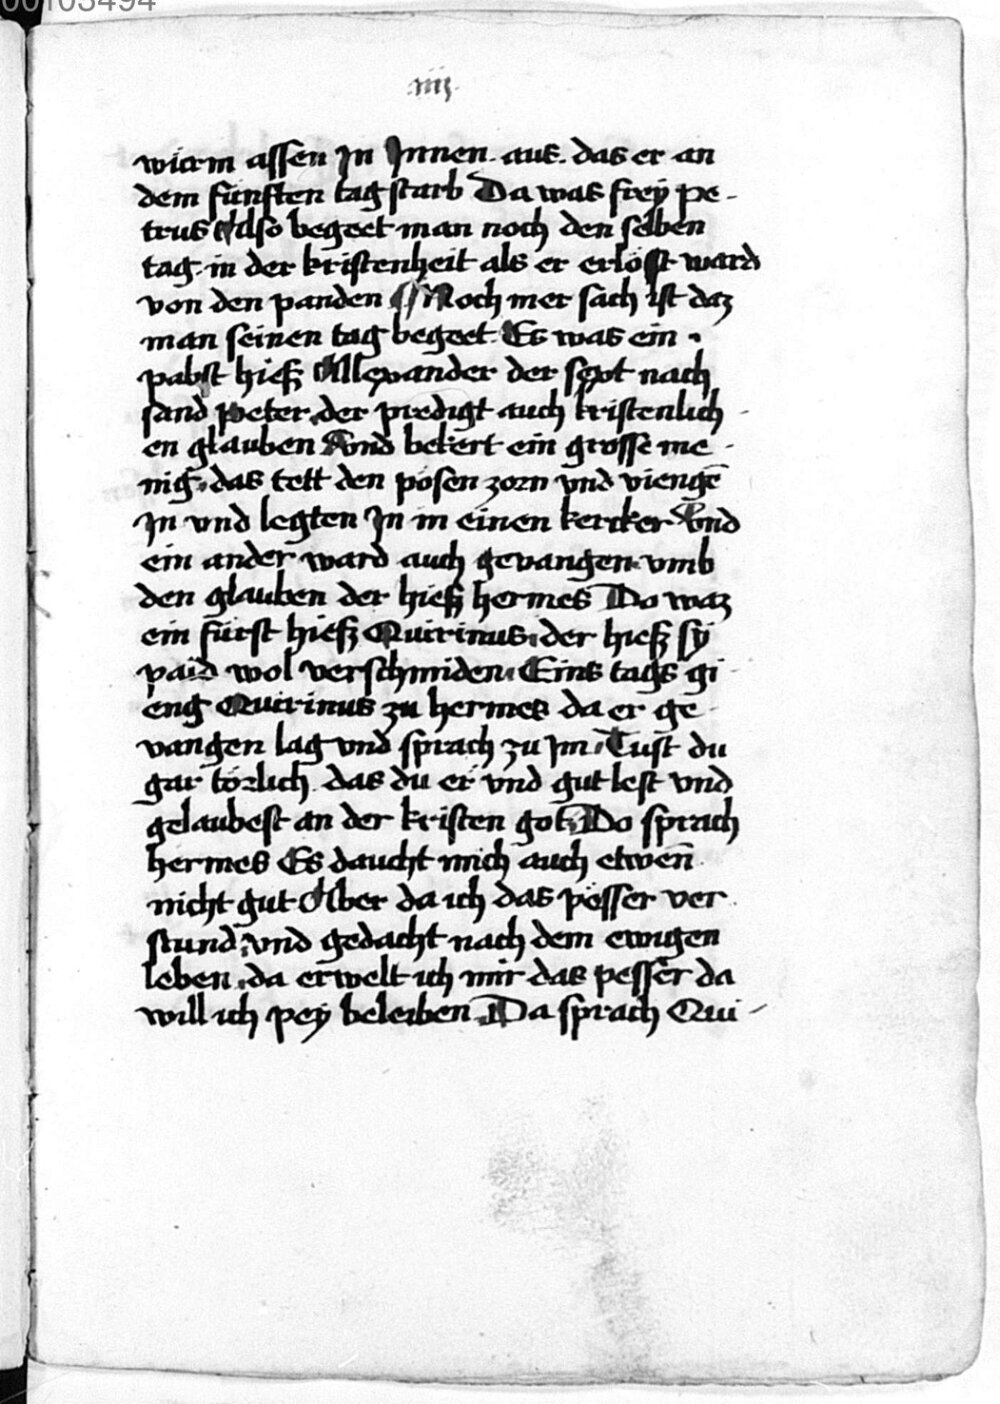 00103494
.iiij.
würm assen jn Jnnen. aus. das er an
dem fünften tag starb Da was freÿ pe-
trus Also begeet man noch den selben
tag. in der kristenheit als er erlöst ward
von den panden Noch mer sach ist daz
man seinen tag begeet. Es was ein.
pabst hiesz Allexander der sext nach
sand peter. der predigt auch kristenlich-
en glauben Vnd bekert ein grosse me-
nig. das tett den pösen zorn vnd viengē
Jn vnd legten Jn in einen kercker Vnd
ein ander ward auch gevangen. vmb
den glauben der hiesz hermes Do waz
ein fürst hiesz Quirinus. der hiesz sÿ
paid wol verschmiden. Eins tags gi-
eng Quirinus zu hermes da er ge-
vangen lag vnd sprach zu jm. Tust du
gar törlich. das du er vnd gut lest vnd
gelaubest an der kristen got. Do sprach
hermes Es daucht mich auch etwen̄
nicht gut Aber da ich das pösser ver-
stund. vnd gedacht nach dem ewigen
leben. da erwelt ich mir das pesser da
will ich peÿ beleiben. Da sprach Qui-